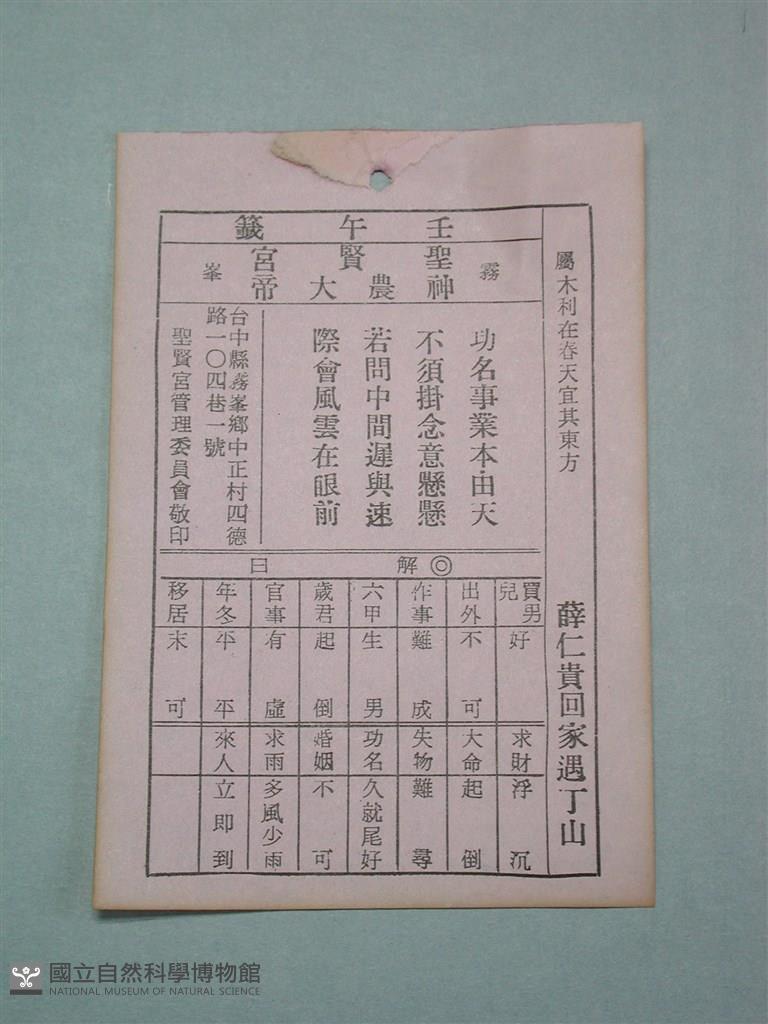 屬木利在春天宜其東方
薛仁貴回家遇丁山
壬午籤
霧峯
聖賢宮
神農大帝
功名事業本由天
不須掛念意懸懸
若問中間遲與速
際會風雲在眼前
台中縣霧峯鄉中正村四德
路一〇四巷一號
聖賢宮管理委員會敬印
◎解曰
買男兒 好
出外 不可
作事 難成
六甲 生男
歲君 起倒
官事 有虛
年冬 平平
移居 末可
求財 浮沉
大命 起倒
失物 難尋
功名 久就尾好
婚姻 不可
求雨 多風少雨
來人 立即到
國立自然科學博物館
NATIONAL MUSEUM OF NATURAL SCIENCE